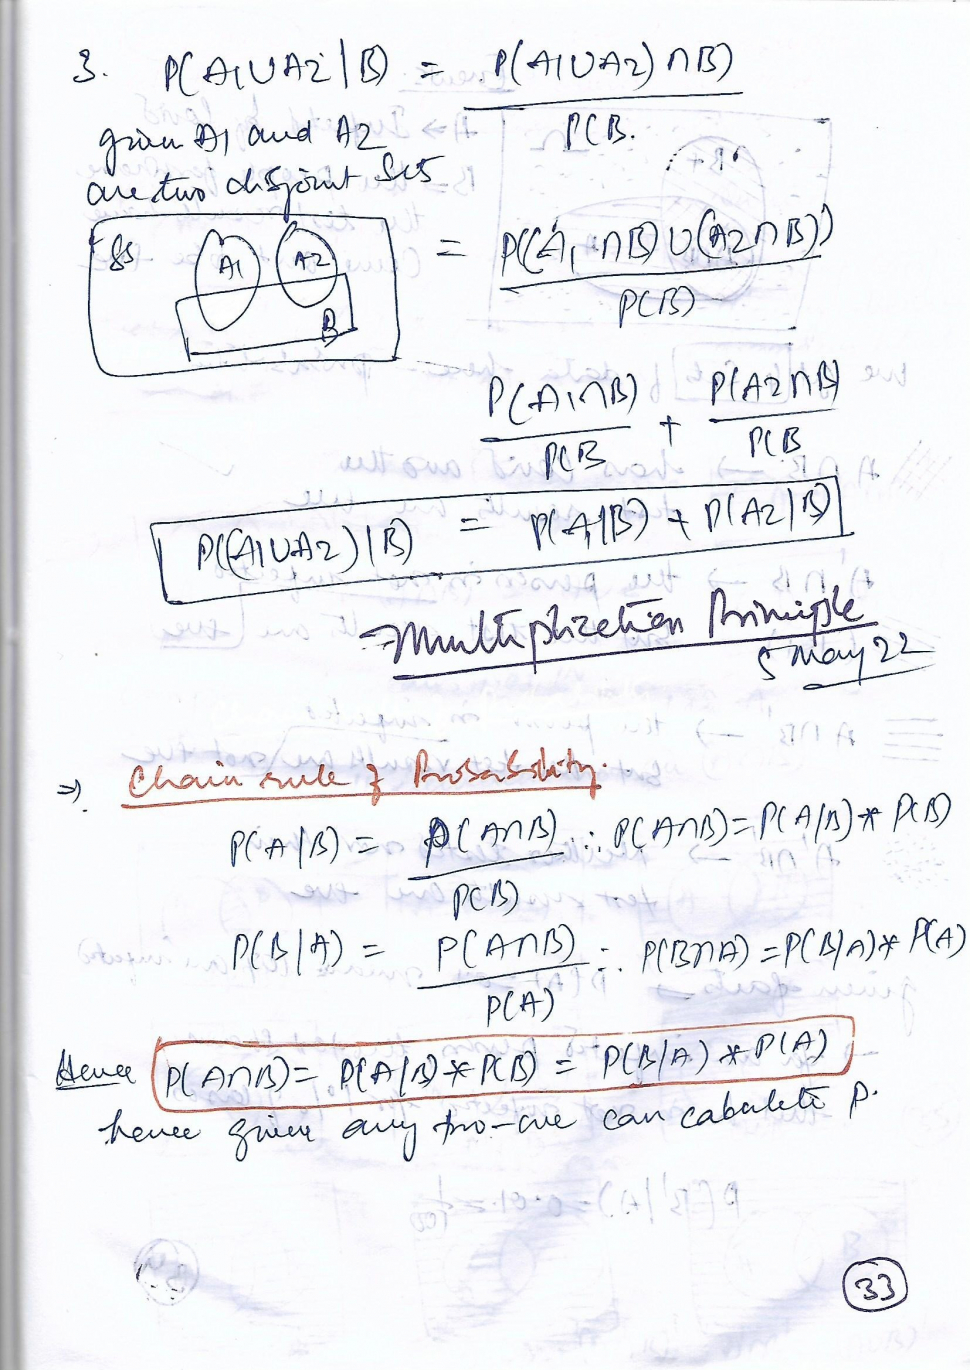 3. P(A1∪A2|B) = P(A1∪A2)∩B)
P(B.
given A1 and A2
are two disjoint sets
SS A1 A2 B
= P((A1∩B)∪(A2∩B))
P(B)
P(A1∩B) + P(A2∩B)
P(B P(B
P((A1∪A2)|B) = P(A1|B) + P(A2|B)
Multiplication Principle
5 May 22
⇒ Chain rule of Probability.
P(A|B) = P(A∩B) ∴ P(A∩B) = P(A|B) * P(B)
P(B)
P(B|A) = P(A∩B) ∴ P(B∩A) = P(B|A) * P(A)
P(A)
Hence P(A∩B) = P(A|B) * P(B) = P(B|A) * P(A)
hence given any two-we can calculate P.
33